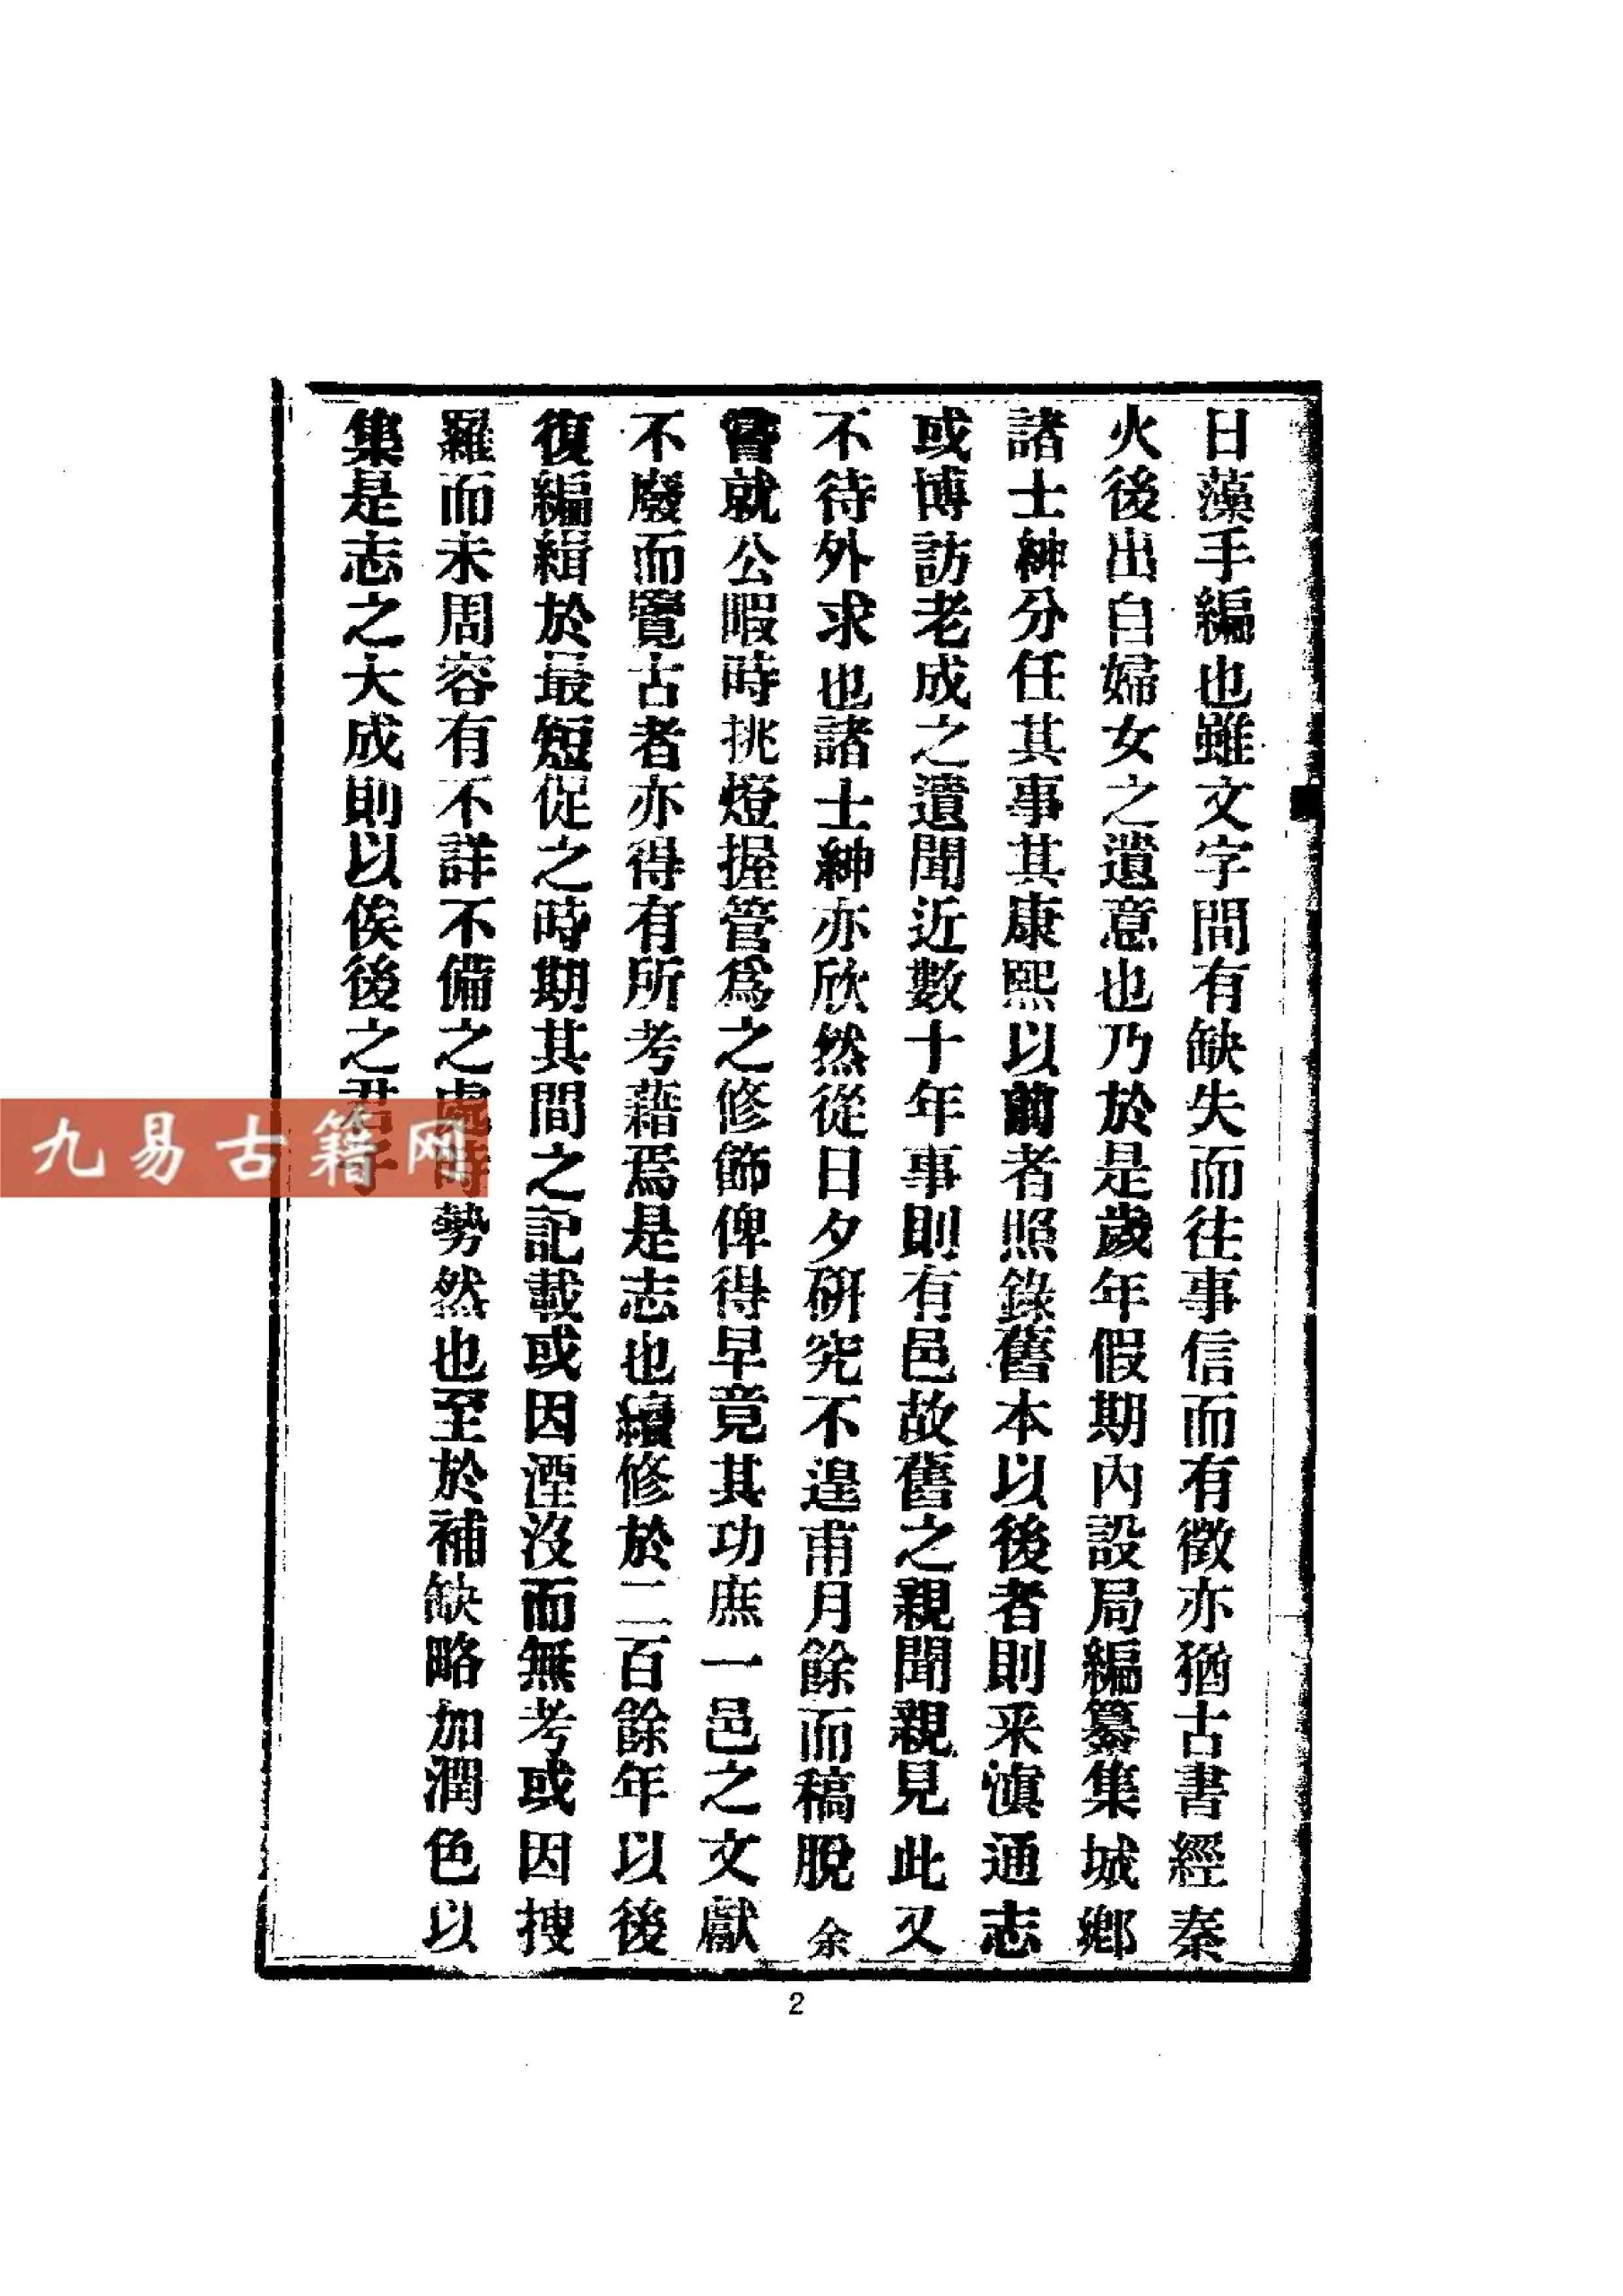 日藻手編也雖文字間有缺失而往事信而有徵亦猶古書經秦
火後出自婦女之遺意也乃於是歲年假期內設局編纂集城鄉
諸士紳分任其事其康熙以前者照錄舊本以後者則采滇通志
或博訪老成之遺聞近數十年事則有邑故舊之親聞親見此又
不待外求也諸士紳亦欣然從日夕硏究不遑甫月餘而稿脫余
嘗就公暇時挑燈握管爲之修飾俾得早竟其功庶一邑之文獻
不廢而覽古者亦得有所考藉焉是志也續修於二百餘年以後
復編緝於最短促之時期其間之記載或因湮沒而無考或因搜
羅而未周容有不詳不備之處時勢然也至於補缺略加潤色以
集是志之大成則以俟後之君子
九易古籍网
2